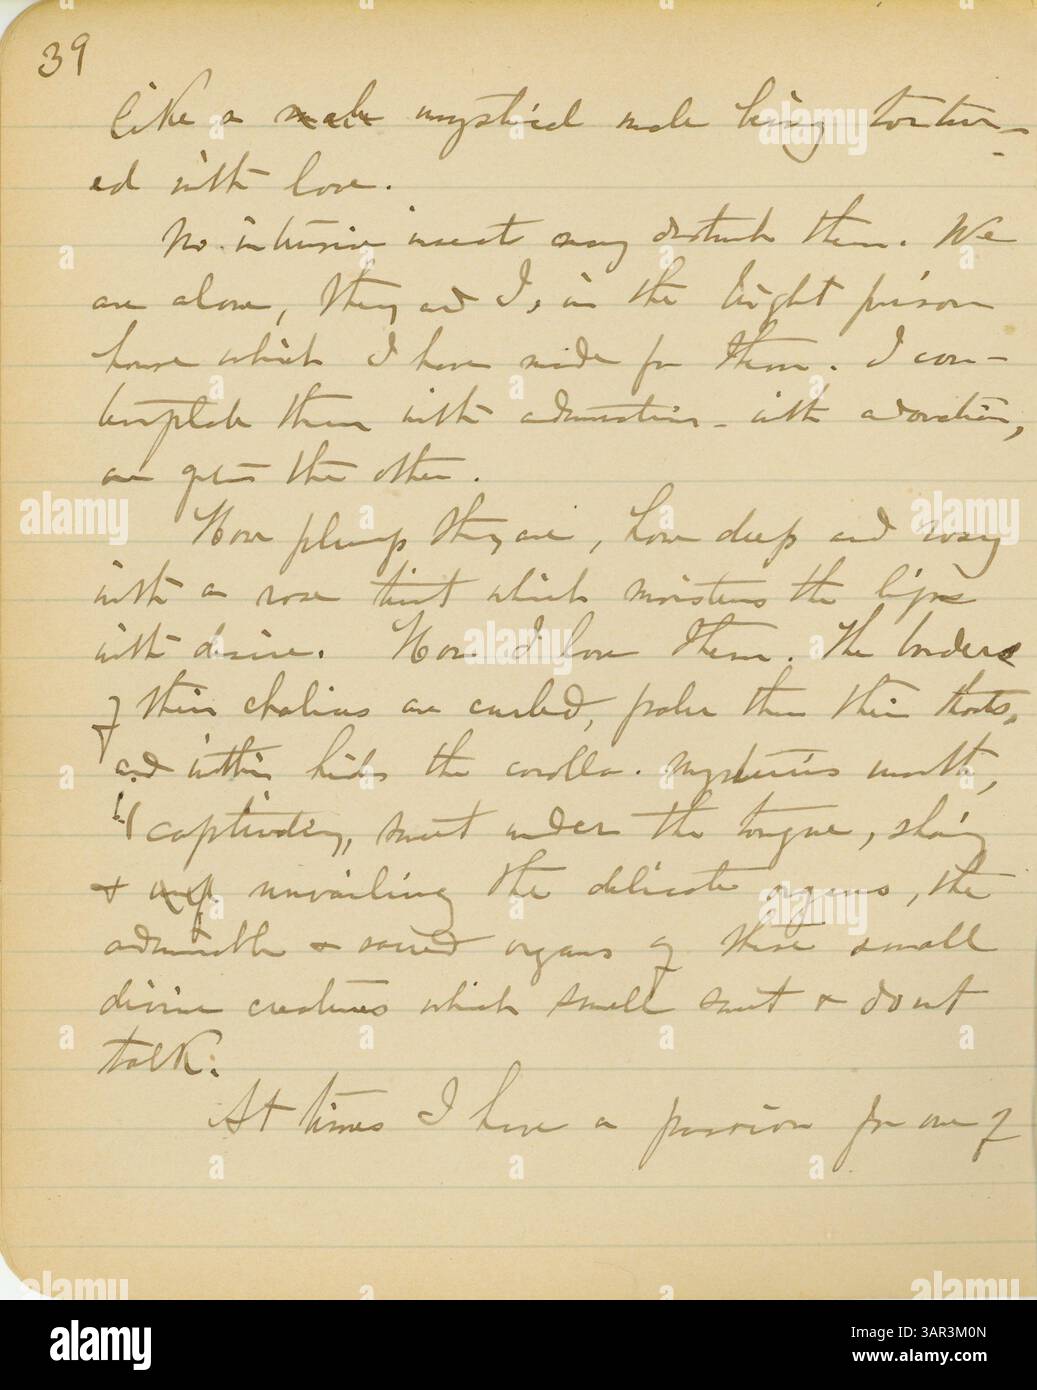 39
like a male mystified male being tortur-
ed with love.
No intrusive insect may disturb them. We
are alone, they and I, in the bright prison
house which I have made for them. I con-
template them with admiration - with adoration,
one after the other.
How plump they are, how deep and rosy
with a rose tint which moistens the lips
with desire. How I love them. The borders
of their chalices are curled, paler than their throats,
and within hides the corolla. mysterious mouth,
captivating, sweet under the tongue, showing
& unvailing the delicate organs, the
admirable & sacred organs of these small
divine creatures which smell sweet & do not
talk.
At times I have a passion for one of
alamy
Image ID: 3AR3M0N
www.alamy.com